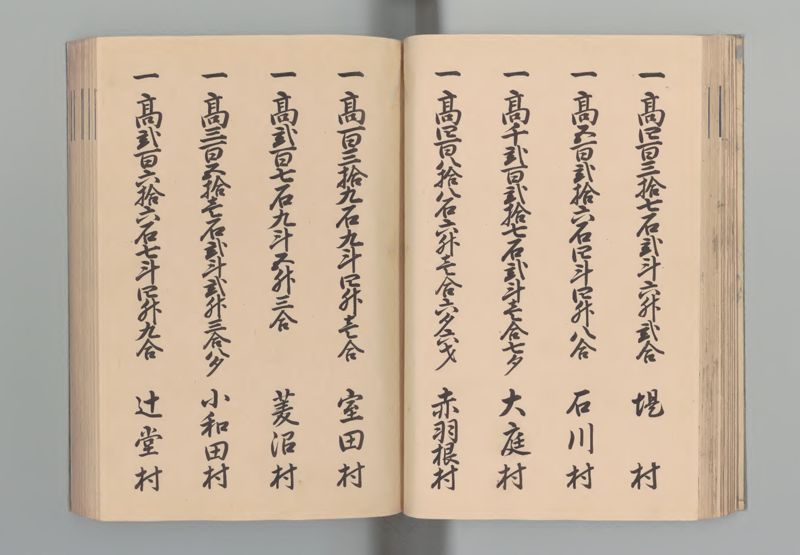 一高四百三拾七石弐斗六升弐合 堤村
一高五百弐拾六石四斗四升八合 石川村
一高千弐百弐拾七石弐斗壱合七夕 大庭村
一高四百八拾八石六升壱合六夕六才 赤羽根村
一高百三拾九石九斗四升壱合 室田村
一高弐百七石九斗五升三合 菱沼村
一高三百五拾壱石弐斗弐升三合八夕 小和田村
一高弐百六拾六石七斗四升九合 辻堂村